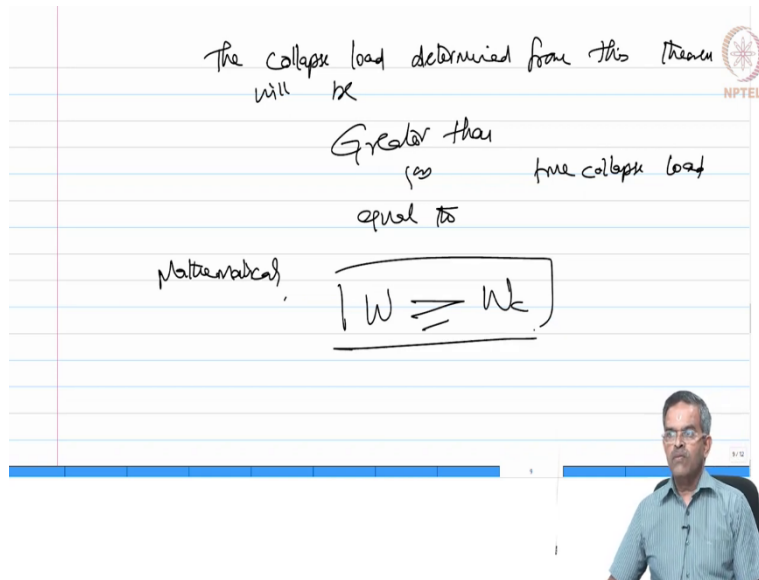 The collapse load determined from this theorem
will be
Greater than
true collapse load
equal to
Mathematical
W ≥ Wc
NPTEL
9/12